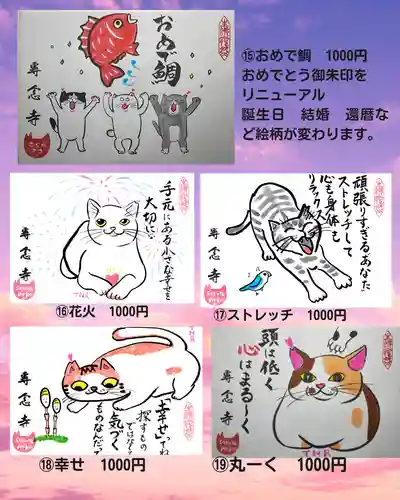 おめで鯛
専念寺
⑮おめで鯛　1000円
おめでとう御朱印を
リニューアル
誕生日　結婚　還暦な
ど絵柄が変わります。
手元にある小さな幸せを
大切に…
専念寺
TNR
⑯花火　1000円
頑張りすぎるあなた
ストレッチして
心も身体も
リラックス
専念寺
TNR
⑰ストレッチ　1000円
「幸せ」ってね
探すもの
ではなく
気づく
ものなんだって
専念寺
TNR
⑱幸せ　1000円
頭は低く
心はまるーく
専念寺
TNR
⑲丸ーく　1000円